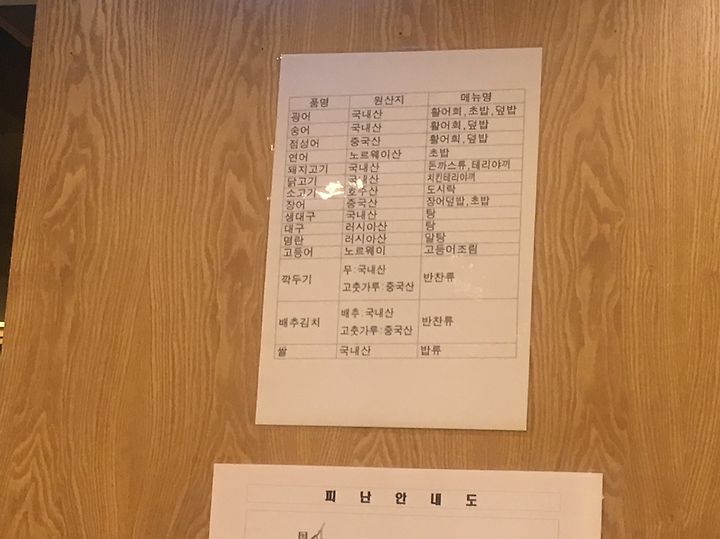 품명 원산지 메뉴명
광어 국내산 활어회,초밥,덮밥
숭어 국내산 활어회,덮밥
점성어 중국산 활어회,덮밥
연어 노르웨이산 초밥
돼지고기 국내산 돈까스류,테리야끼
닭고기 국내산 치킨테리야끼
소고기 호주산 도시락
장어 중국산 장어덮밥,초밥
생대구 국내산 탕
대구 러시아산 탕
명란 러시아산 알탕
고등어 노르웨이 고등어조림
깍두기 무:국내산 고춧가루:중국산 반찬류
배추김치 배추:국내산 고춧가루:중국산 반찬류
쌀 국내산 밥류
피난안내도